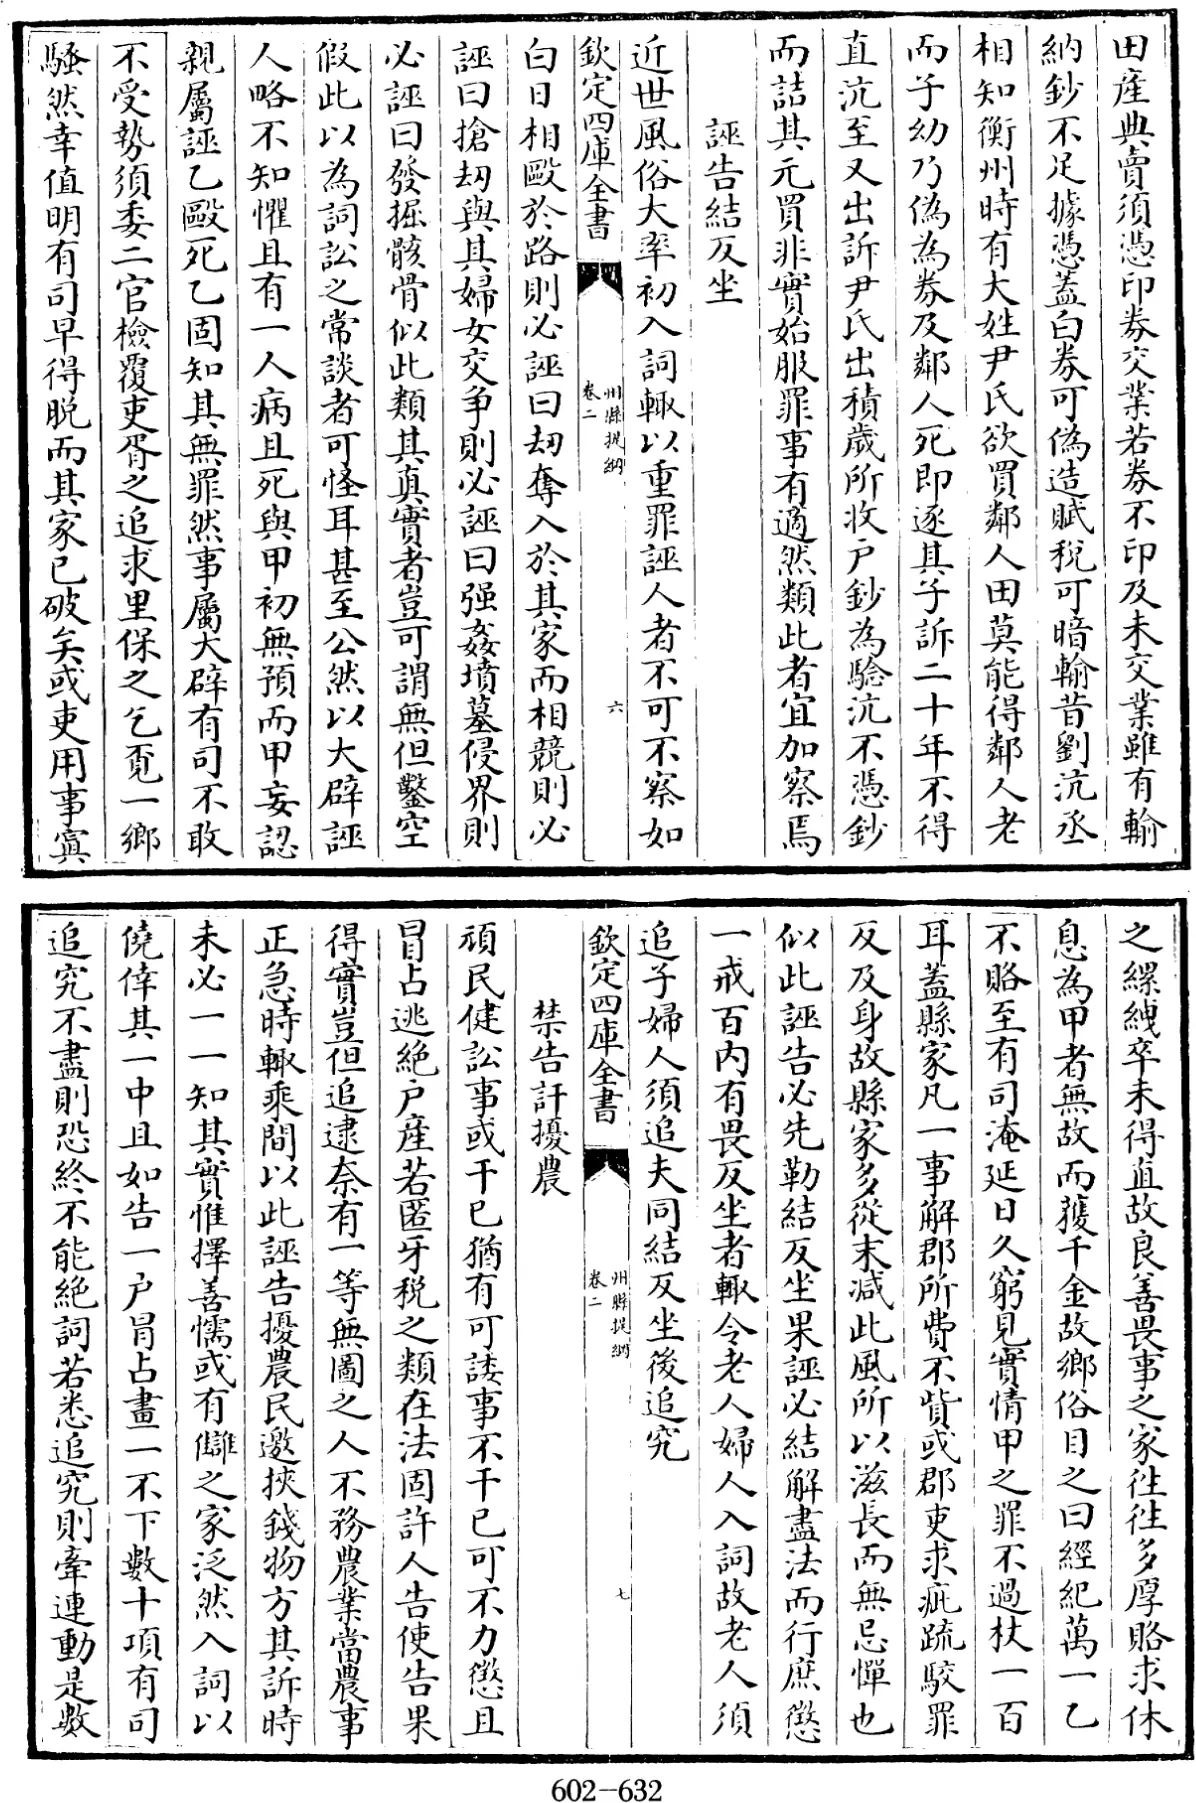 田産典賣須憑印券交業若券不印及未交業雖有輸
納鈔不足據憑蓋白券可偽造賦稅可暗輸昔劉沆丞
相知衡州時有大姓尹氏欲買鄰人田莫能得鄰人老
而子幼乃偽為券及鄰人死即逐其子訴二十年不得
直沆至又出訴尹氏出積歲所收户鈔為驗沆不憑鈔
而詰其元買非實始服罪事有適然類此者宜加察焉
誣告結反坐
近世風俗大率初入詞輙以重罪誣人者不可不察如
欽定四庫全書
州縣提綱
卷二
六
白日相毆於路則必誣曰刼奪入於其家而相競則必
誣曰搶刼與其婦女交争則必誣曰强姦墳墓侵界則
必誣曰發掘骸骨似此類其真實者豈可謂無但鑿空
假此以為詞訟之常談者可怪耳甚至公然以大辟誣
人略不知懼且有一人病且死與甲初無預而甲妄認
親屬誣乙毆死乙固知其無罪然事屬大辟有司不敢
不受勢須委二官檢覆吏胥之追求里保之乞覓一鄉
騷然幸值明有司早得脱而其家已破矣或吏用事寘
之縲絏卒未得直故良善畏事之家徃徃多厚賂求休
息為甲者無故而獲千金故鄉俗目之曰經紀萬一乙
不賂至有司淹延日久窮見實情甲之罪不過杖一百
耳蓋縣家凡一事解郡所費不貲或郡吏求疵疏駮罪
反及身故縣家多從末減此風所以滋長而無忌憚也
似此誣告必先勒結反坐果誣必結解盡法而行庶懲
一戒百内有畏反坐者輙令老人婦人入詞故老人須
追子婦人須追夫同結反坐後追究
欽定四庫全書
州縣提綱
卷二
七
禁告訐擾農
頑民健訟事或干已猶有可諉事不干已可不力懲且
冒占逃絶户産若匿牙税之類在法固許人告使告果
得實豈但追逮奈有一等無圖之人不務農業當農事
正急時輙乘間以此誣告擾農民邀挾錢物方其訴時
未必一一知其實惟擇善懦或有讎之家泛然入詞以
僥倖其一中且如告一户冒占畫一不下數十項有司
追究不盡則恐終不能絶詞若悉追究則牽連動是數
602-632